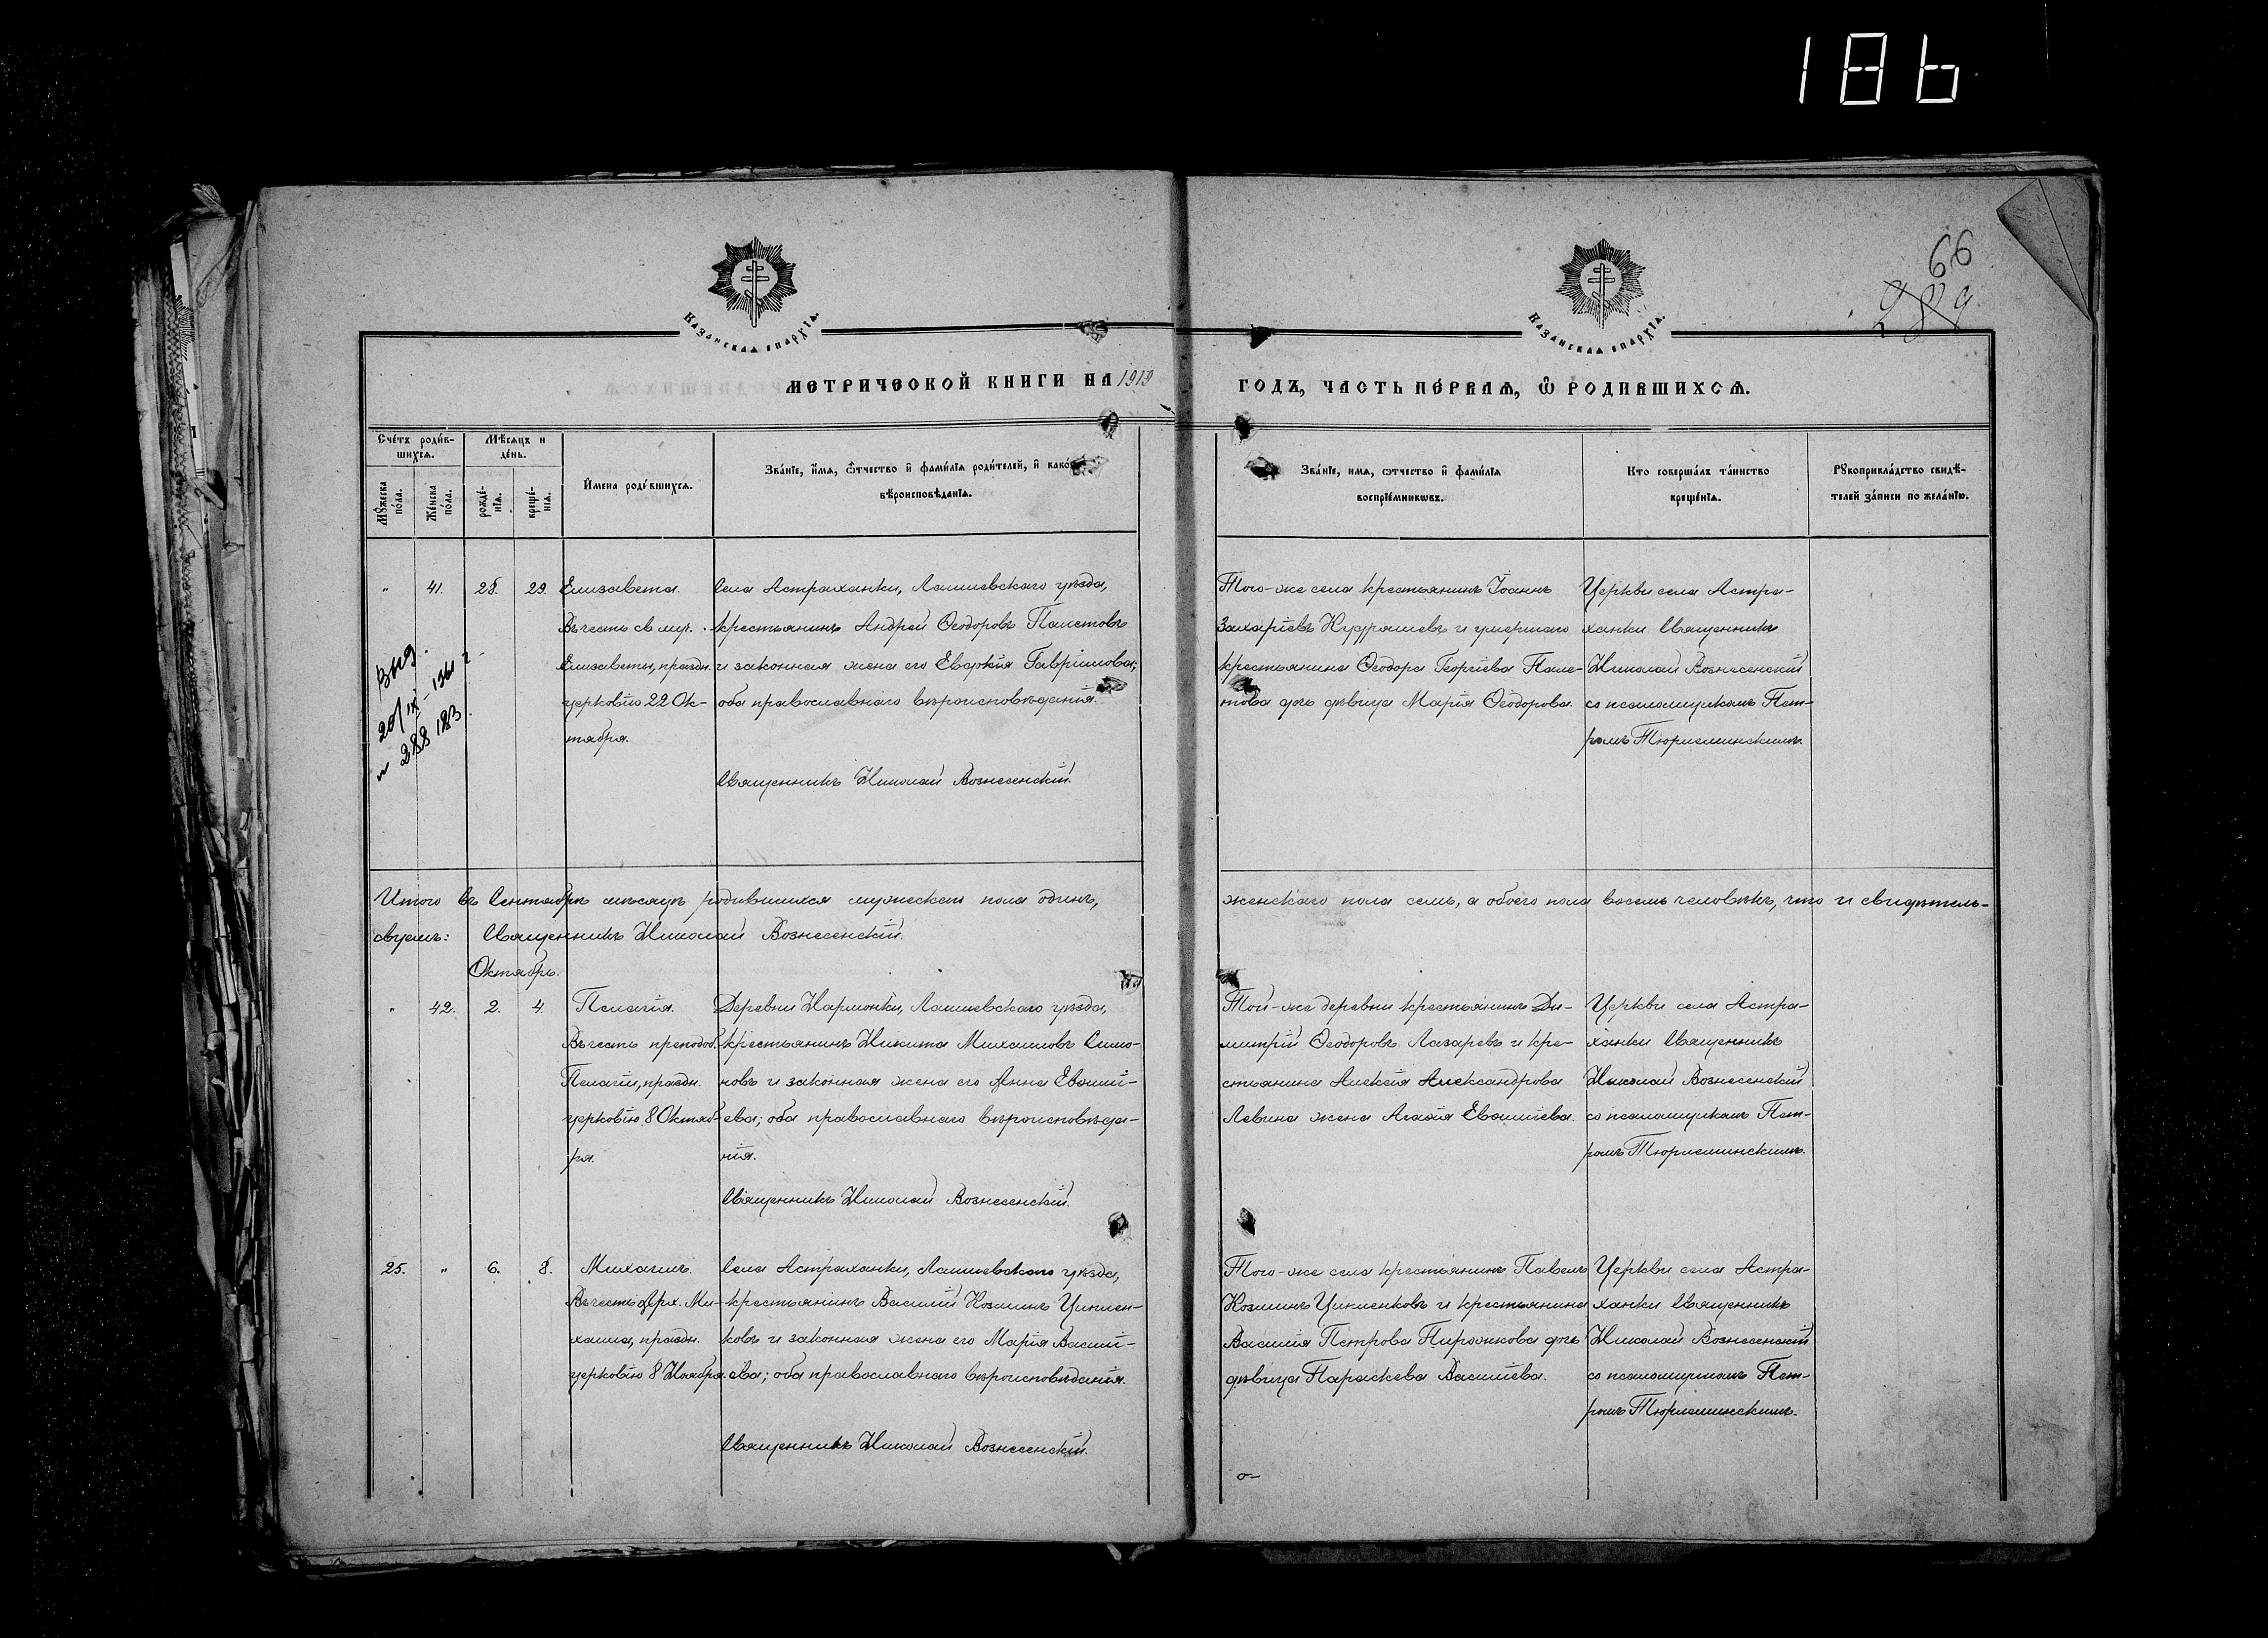 186
66
289
Казанскаѧ епархїѧ.
Казанскаѧ епархїѧ.
МЕТРИЧЕСКОЙ КНИГИ НА 1913 ГОДЪ, ЧАСТЬ ПЕ́РВАѦ, Ѽ РОДИВШИХСѦ.
Сче́тъ роди́в-
шихсѧ.
Мѣ́сѧцъ и
де́нь.
Мꙋ́жеска
по́ла.
Же́нска
по́ла.
рожде́-
нїѧ.
креще́-
нїѧ.
И́мена роди́вшихсѧ.
Зва́нїе, и́мѧ, ѻ҆́тчество и҆ фами́лїѧ роди́телей, и҆ како́
вѣ́роисповѣ́данїѧ.
Зва́нїе, имѧ, ѻтчество и҆ фами́лїѧ
воспрїе́мникѡвъ.
Кто соверша́лъ та́инство
креще́нїѧ.
Рꙋкоприкла́дство свидѣ́-
телей за́писи по жела́нїю.
" 41. 28. 29. Елизавета.
Въ честь св. муч.
Елизаветы, праздн.
церковію 22 Ок-
тября.
Села Астраханки, Лаишевскаго уѣзда,
крестьянинъ Андрей Ѳеодоровъ Паистовъ
и законная жена его Евдокія Гавріилова,
оба православнаго вѣроисповѣданія.
Священникъ Николай Вознесенскій.
Того-же села крестьянинъ Іоаннъ
Захаріевъ Кудряшевъ и умершаго
крестьянина Ѳеодора Георгіева Паис-
това дочь дѣвица Марія Ѳеодорова.
Церкви села Астра-
ханки Священникъ
Николай Вознесенскій
со псаломщикомъ Пет-
ромъ Тюрлеминскимъ.
Итого въ Сентябрѣ мѣсяцѣ родившихся мужескаго пола одинъ, женскаго пола семь, а обоего пола восемь человѣкъ, что и свидѣтель-
ствуемъ: Священникъ Николай Вознесенскій.
Октябрь.
" 42. 2. 4. Пелагія.
Въ честь преподоб.
Пелагіи, праздн.
церковію 8 Октяб-
ря.
Деревни Нармонки, Лаишевскаго уѣзда,
крестьянинъ Никита Михаиловъ Симо-
новъ и законная жена его Анна Евѳимі-
ева; оба православнаго вѣроисповѣда-
нія.
Священникъ Николай Вознесенскій.
Той-же деревни крестьянинъ Ди-
митрій Ѳеодоровъ Лазаревъ и кре-
стьянина Алексія Александрова
Левина жена Агаѳія Евѳиміева.
Церкви села Астра-
ханки Священникъ
Николай Вознесенскій
со псаломщикомъ Пет-
ромъ Тюрлеминскимъ.
25. " 6. 8. Михаилъ.
Въ честь Арх. Ми-
хаила, праздн.
церковію 8 Ноября.
Села Астраханки, Лаишевскаго уѣзда,
крестьянинъ Василій Козминъ Циклен-
ковъ и законная жена его Марія Васили-
ева; оба православнаго вѣроисповѣданія.
Священникъ Николай Вознесенскій.
Того-же села крестьянинъ Павелъ
Козминъ Цикленковъ и крестьянина
Василія Петрова Пирожкова дочь
дѣвица Параскева Василіева.
Церкви села Астра-
ханки Священникъ
Николай Вознесенскій
со псаломщикомъ Пет-
ромъ Тюрлеминскимъ.